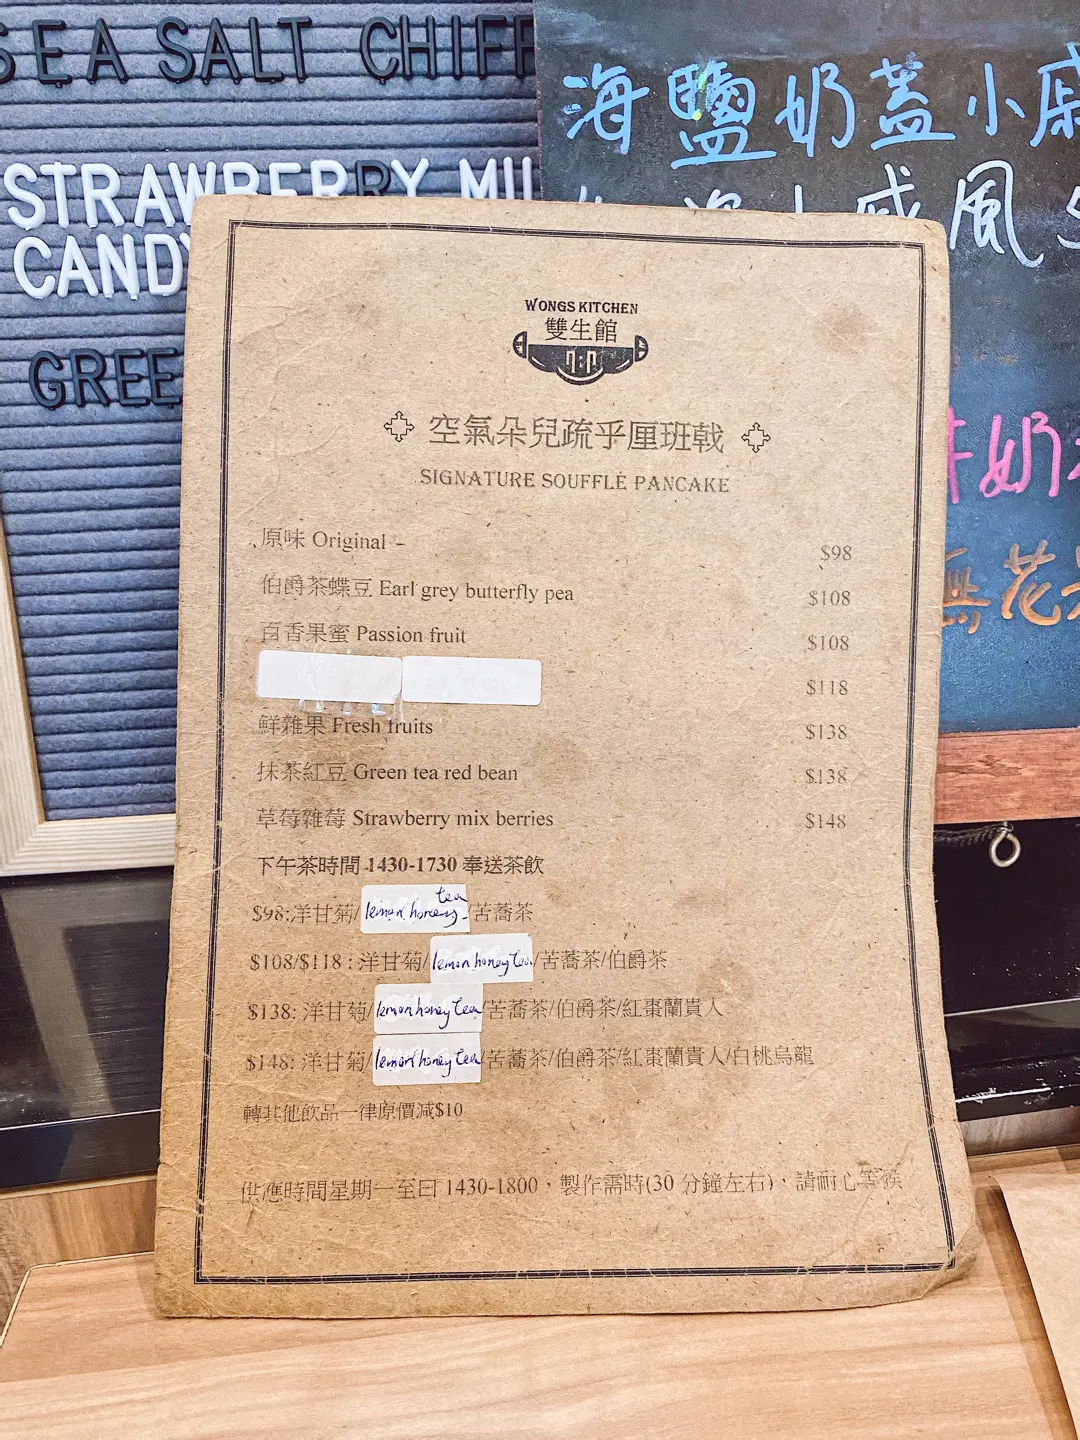 SEA SALT CHIFF
STRAWBERRY MIL
CANDY
GREE
海鹽奶蓋小戚
戚風
奶
無花
WONGS KITCHEN
雙生館
空氣朵兒疏乎厘班戟
SIGNATURE SOUFFLÉ PANCAKE
原味 Original $98
伯爵茶蝶豆 Earl grey butterfly pea $108
百香果蜜 Passion fruit $108
$118
鮮雜果 Fresh fruits $138
抹茶紅豆 Green tea red bean $138
草莓雜莓 Strawberry mix berries $148
下午茶時間 1430-1730 奉送茶飲
$98:洋甘菊/lemon honey tea/苦蕎茶
$108/$118 : 洋甘菊/lemon honey tea/苦蕎茶/伯爵茶
$138: 洋甘菊/lemon honey tea/苦蕎茶/伯爵茶/紅棗蘭貴人
$148: 洋甘菊/lemon honey tea/苦蕎茶/伯爵茶/紅棗蘭貴人/白桃烏龍
轉其他飲品一律原價減$10
供應時間星期一至日 1430-1800，製作需時(30 分鐘左右)，請耐心等候